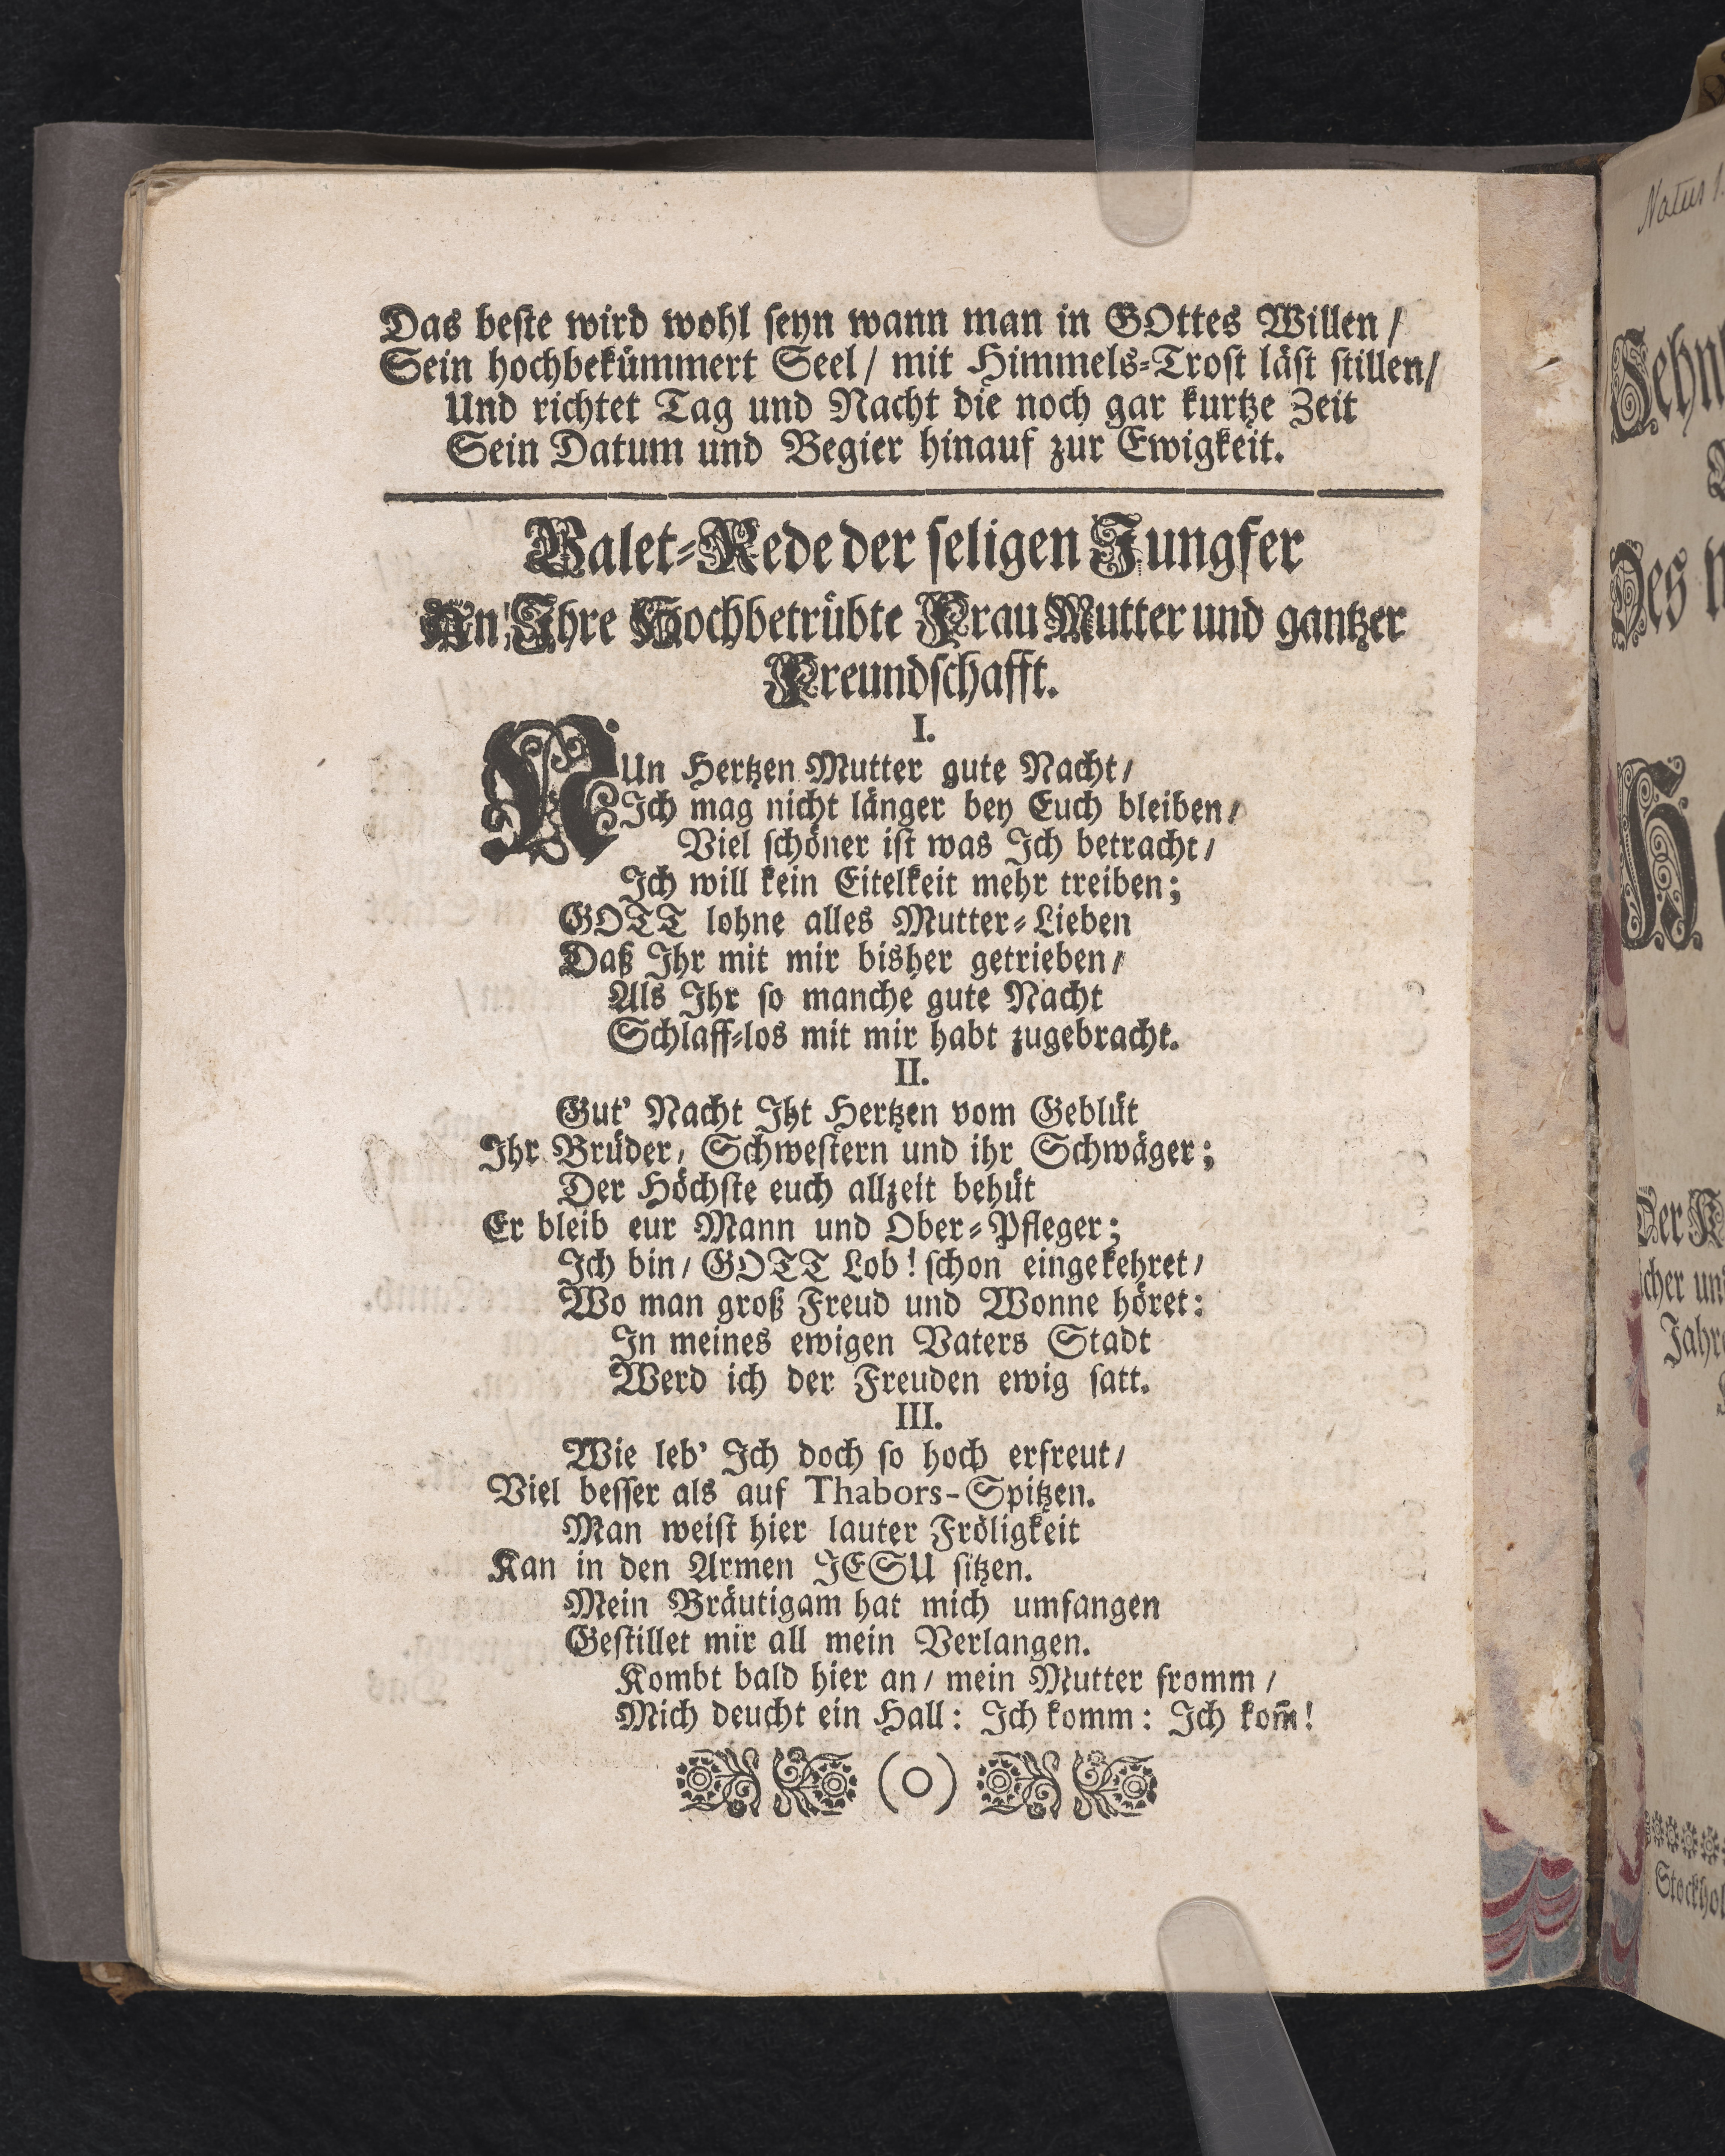 Das beste wird wohl seyn wann man in GOttes Willen /
Sein hochbekümmert Seel / mit Himmels-Trost läst stillen /
Und richtet Tag und Nacht die noch gar kurtze Zeit
Sein Datum und Begier hinauf zur Ewigkeit.
Valet-Rede der seligen Jungfer
An Ihre Hochbetrübte Frau Mutter und gantzer
Freundschafft.
I.
NUn Hertzen Mutter gute Nacht /
Ich mag nicht länger bey Euch bleiben /
Viel schöner ist was Ich betracht /
Ich will kein Eitelkeit mehr treiben;
GOTT lohne alles Mutter-Lieben
Daß Ihr mit mir bisher getrieben /
Als Ihr so manche gute Nacht
Schlaff-los mit mir habt zugebracht.
II.
Gut' Nacht Iht Hertzen vom Geblüt
Ihr Brüder / Schwestern und ihr Schwäger;
Der Höchste euch allzeit behüt
Er bleib eur Mann und Ober-Pfleger;
Ich bin / GOTT Lob! schon eingekehret /
Wo man groß Freud und Wonne höret:
In meines ewigen Vaters Stadt
Werd ich der Freuden ewig satt.
III.
Wie leb' Ich doch so hoch erfreut /
Viel besser als auf Thabors-Spitzen.
Man weist hier lauter Fröligkeit
Kan in den Armen JESU sitzen.
Mein Bräutigam hat mich umfangen
Gestillet mir all mein Verlangen.
Kombt bald hier an / mein Mutter fromm /
Mich deucht ein Hall: Ich komm: Ich kom̃!
(O)
Natus
Des
Der
Jahr